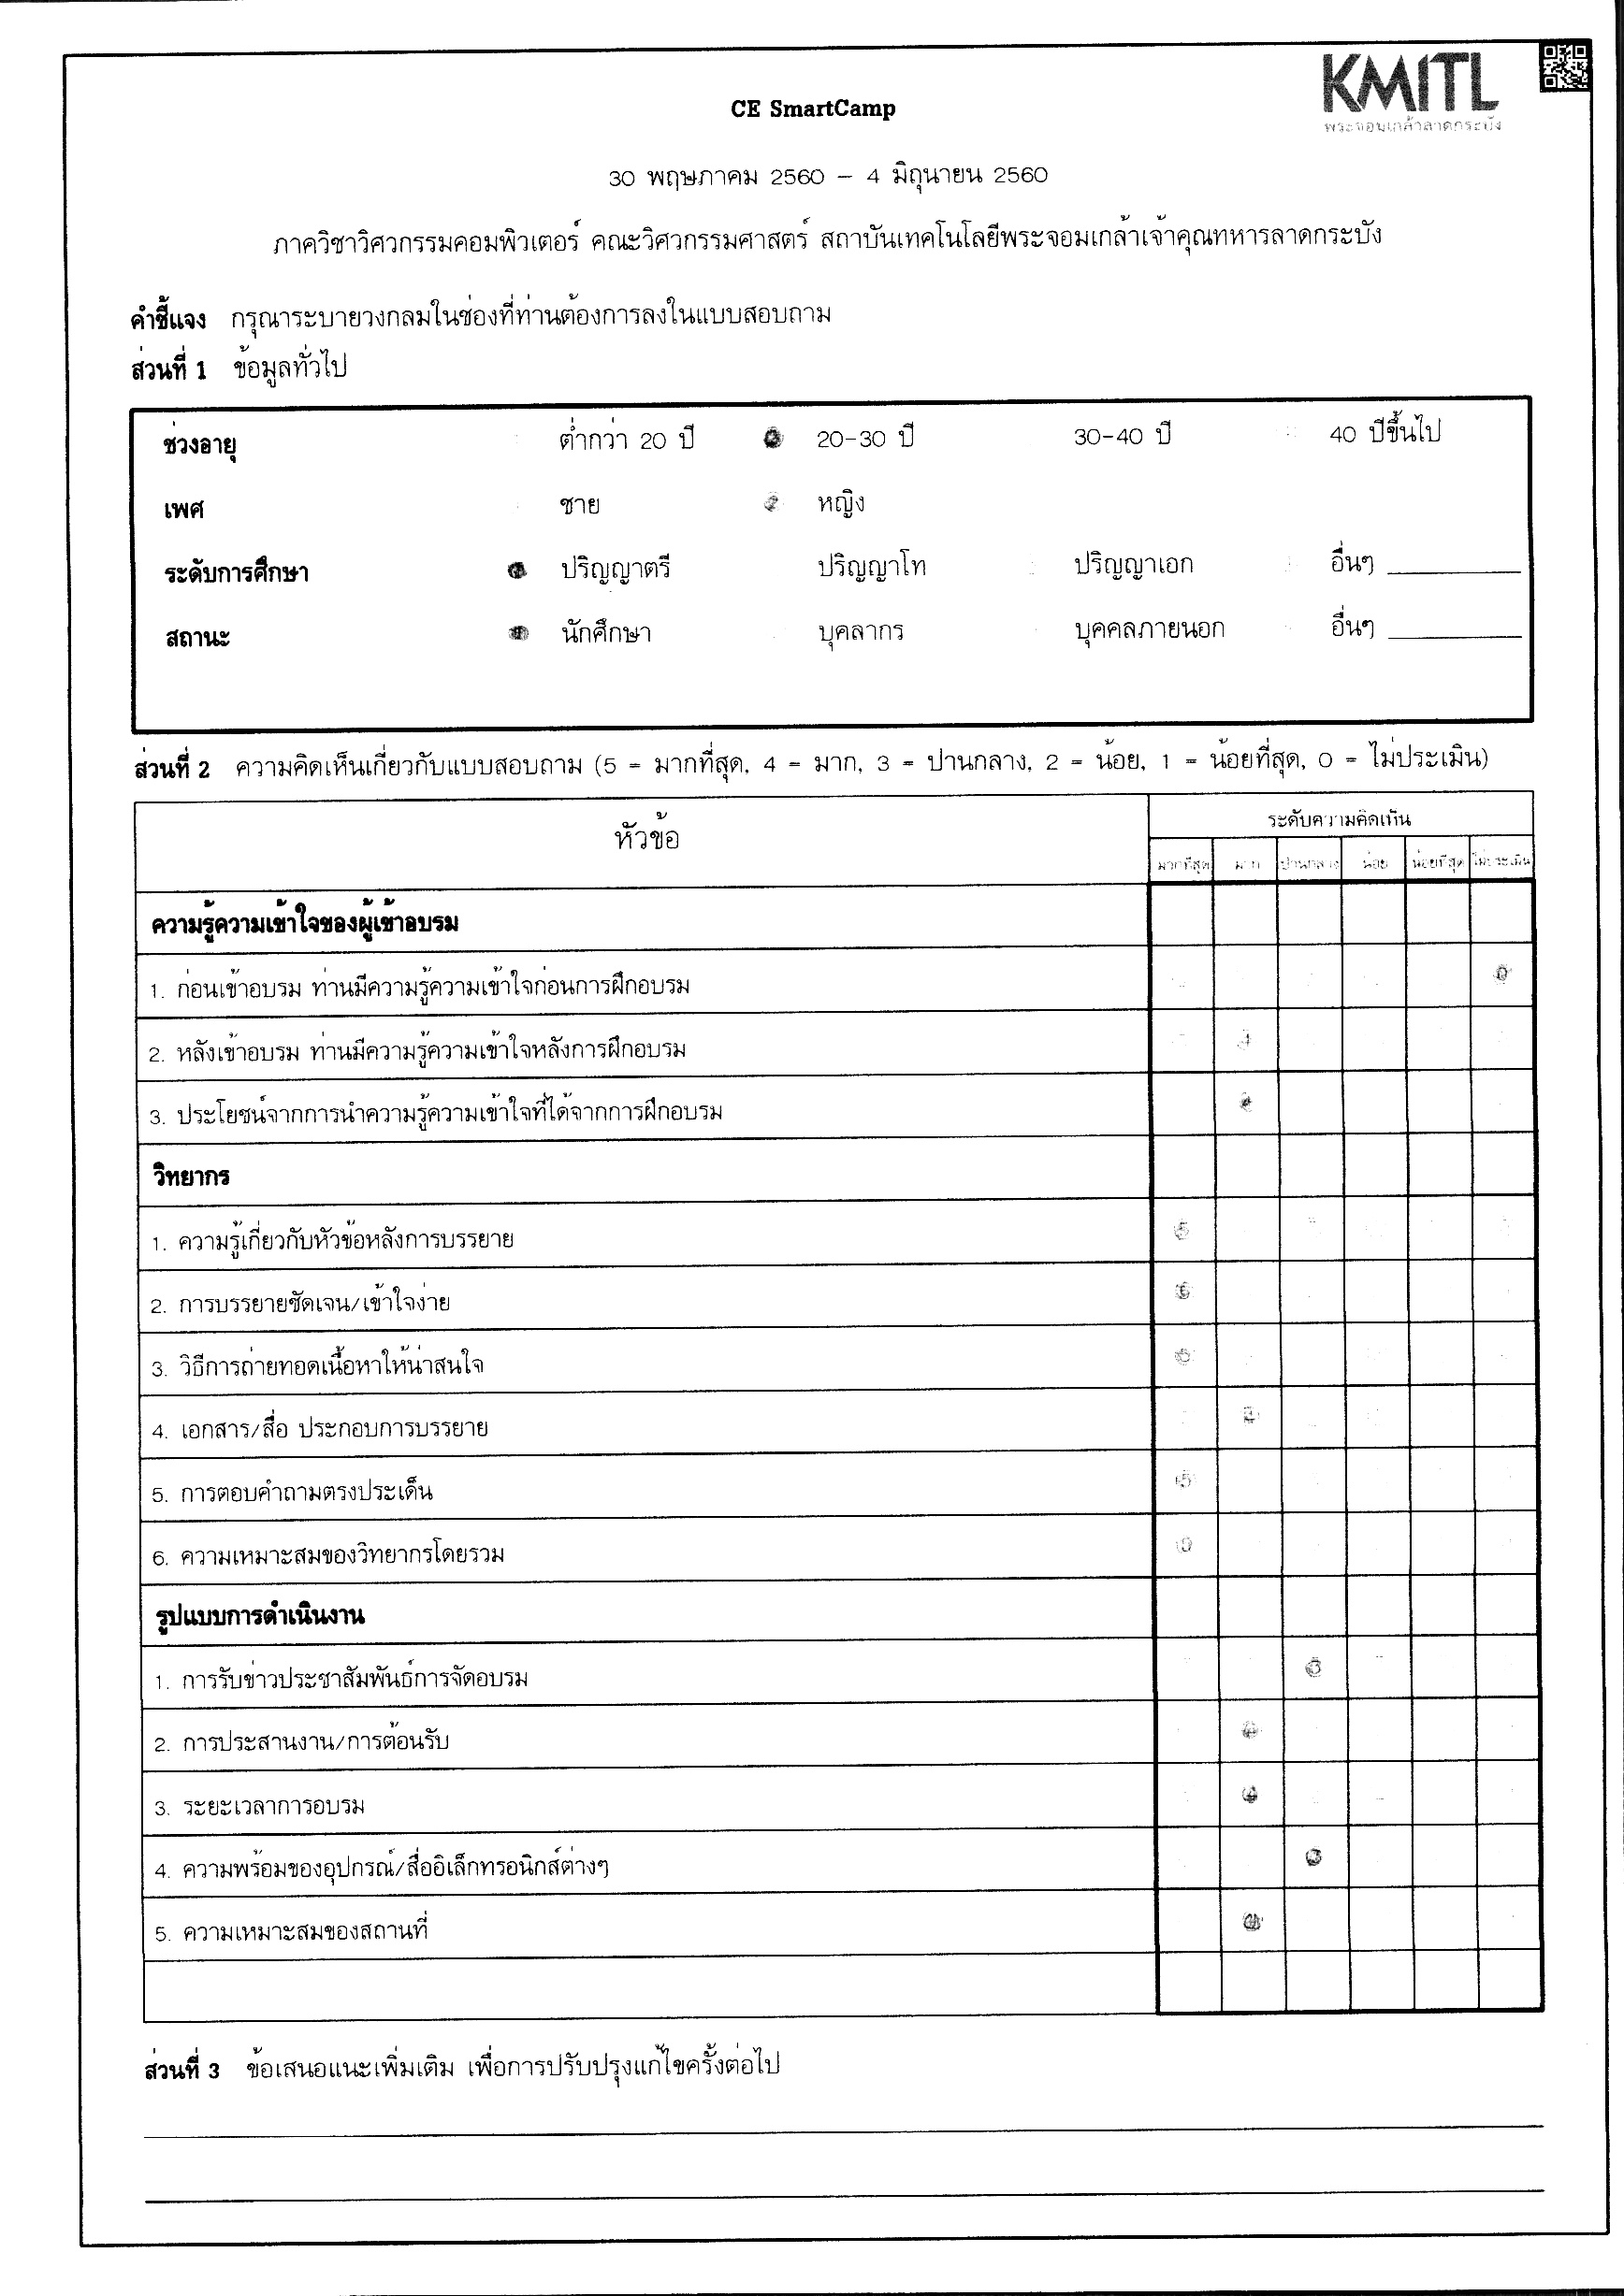 KMITL
พระจอมเกล้าลาดกระบัง
CE SmartCamp
30 พฤษภาคม 2560 – 4 มิถุนายน 2560
ภาควิชาวิศวกรรมคอมพิวเตอร์ คณะวิศวกรรมศาสตร์ สถาบันเทคโนโลยีพระจอมเกล้าเจ้าคุณทหารลาดกระบัง
คำชี้แจง กรุณาระบายวงกลมในช่องที่ท่านต้องการลงในแบบสอบถาม
ส่วนที่ 1 ข้อมูลทั่วไป
ช่วงอายุ ต่ำกว่า 20 ปี 20-30 ปี 30-40 ปี 40 ปีขึ้นไป
เพศ ชาย หญิง
ระดับการศึกษา ปริญญาตรี ปริญญาโท ปริญญาเอก อื่นๆ
สถานะ นักศึกษา บุคลากร บุคคลภายนอก อื่นๆ
ส่วนที่ 2 ความคิดเห็นเกี่ยวกับแบบสอบถาม (5 = มากที่สุด, 4 = มาก, 3 = ปานกลาง, 2 = น้อย, 1 = น้อยที่สุด, 0 = ไม่ประเมิน)
หัวข้อ ระดับความคิดเห็น
มากที่สุด มาก ปานกลาง น้อย น้อยที่สุด ไม่ประเมิน
ความรู้ความเข้าใจของผู้เข้าอบรม
1. ก่อนเข้าอบรม ท่านมีความรู้ความเข้าใจก่อนการฝึกอบรม
2. หลังเข้าอบรม ท่านมีความรู้ความเข้าใจหลังการฝึกอบรม
3. ประโยชน์จากการนำความรู้ความเข้าใจที่ได้จากการฝึกอบรม
วิทยากร
1. ความรู้เกี่ยวกับหัวข้อหลังการบรรยาย
2. การบรรยายชัดเจน/เข้าใจง่าย
3. วิธีการถ่ายทอดเนื้อหาให้น่าสนใจ
4. เอกสาร/สื่อ ประกอบการบรรยาย
5. การตอบคำถามตรงประเด็น
6. ความเหมาะสมของวิทยากรโดยรวม
รูปแบบการดำเนินงาน
1. การรับข่าวประชาสัมพันธ์การจัดอบรม
2. การประสานงาน/การต้อนรับ
3. ระยะเวลาการอบรม
4. ความพร้อมของอุปกรณ์/สื่ออิเล็กทรอนิกส์ต่างๆ
5. ความเหมาะสมของสถานที่
ส่วนที่ 3 ข้อเสนอแนะเพิ่มเติม เพื่อการปรับปรุงแก้ไขครั้งต่อไป